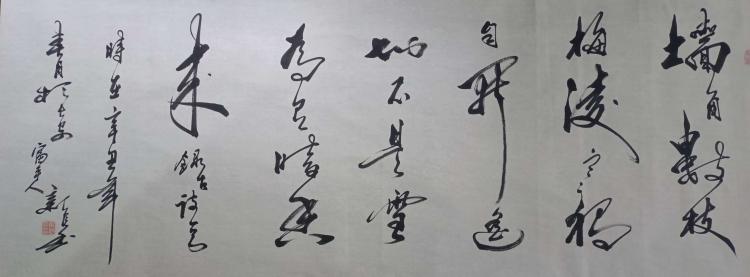 墙角数枝
梅凌寒独
自开遥
知不是雪
为有暗香
来 录古诗
时在辛丑年
春月于长安